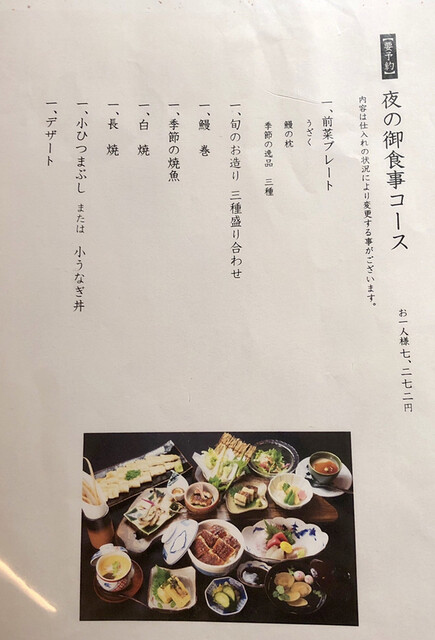 【要予約】
夜の御食事コース
内容は仕入れの状況により変更する事がございます。
お一人様七、二七二円
一、前菜プレート
うざく
鰻の枕
季節の逸品 三種
一、旬のお造り 三種盛り合わせ
一、鰻巻
一、季節の焼魚
一、白焼
一、長焼
一、小ひつまぶし または 小うなぎ丼
一、デザート